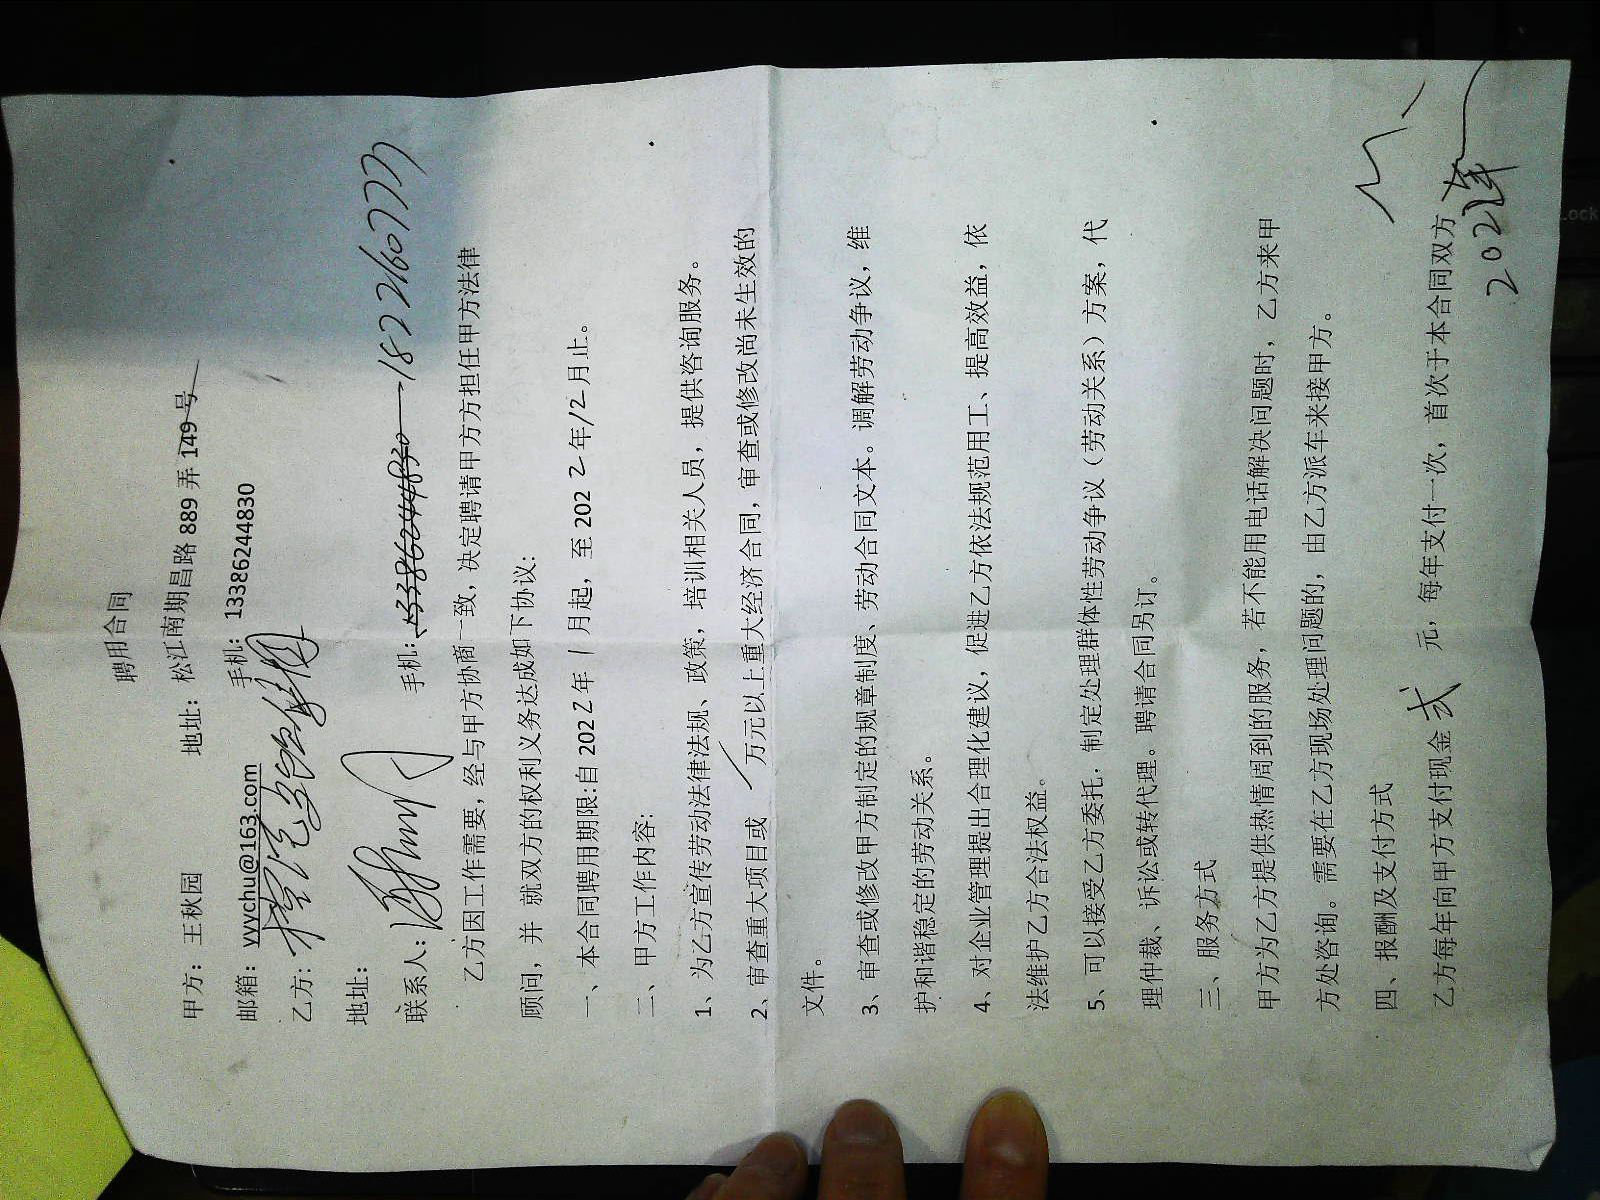 聘用合同
甲方：王秋园 地址：松江南期昌路 889 弄 149 号
邮箱：yvychu@163.com 手机：13386244830
乙方：
地址：
联系人： 手机：13386244830 18221607777
乙方因工作需要，经与甲方协商一致，决定聘请甲方方担任甲方法律
顾问，并 就双方的权利义务达成如下协议：
一、本合同聘用期限：自 2022 年 1 月起，至 2022 年 12 月止。
二、甲方工作内容：
1、为乙方宣传劳动法律法规、政策，培训相关人员，提供咨询服务。
2、审查重大项目或 / 万元以上重大经济合同，审查或修改尚未生效的
文件。
3、审查或修改甲方制定的规章制度、劳动合同文本。调解劳动争议，维
护和谐稳定的劳动关系。
4、对企业管理提出合理化建议，促进乙方依法规范用工、提高效益，依
法维护乙方合法权益。
5、可以接受乙方委托，制定处理群体性劳动争议（劳动关系）方案，代
理仲裁、诉讼或转代理。聘请合同另订。
三、服务方式
甲方为乙方提供热情周到的服务，若不能用电话解决问题时，乙方来甲
方处咨询。需要在乙方现场处理问题的，由乙方派车来接甲方。
四、报酬及支付方式
乙方每年向甲方支付现金 贰 元，每年支付一次，首次于本合同双方
2021年